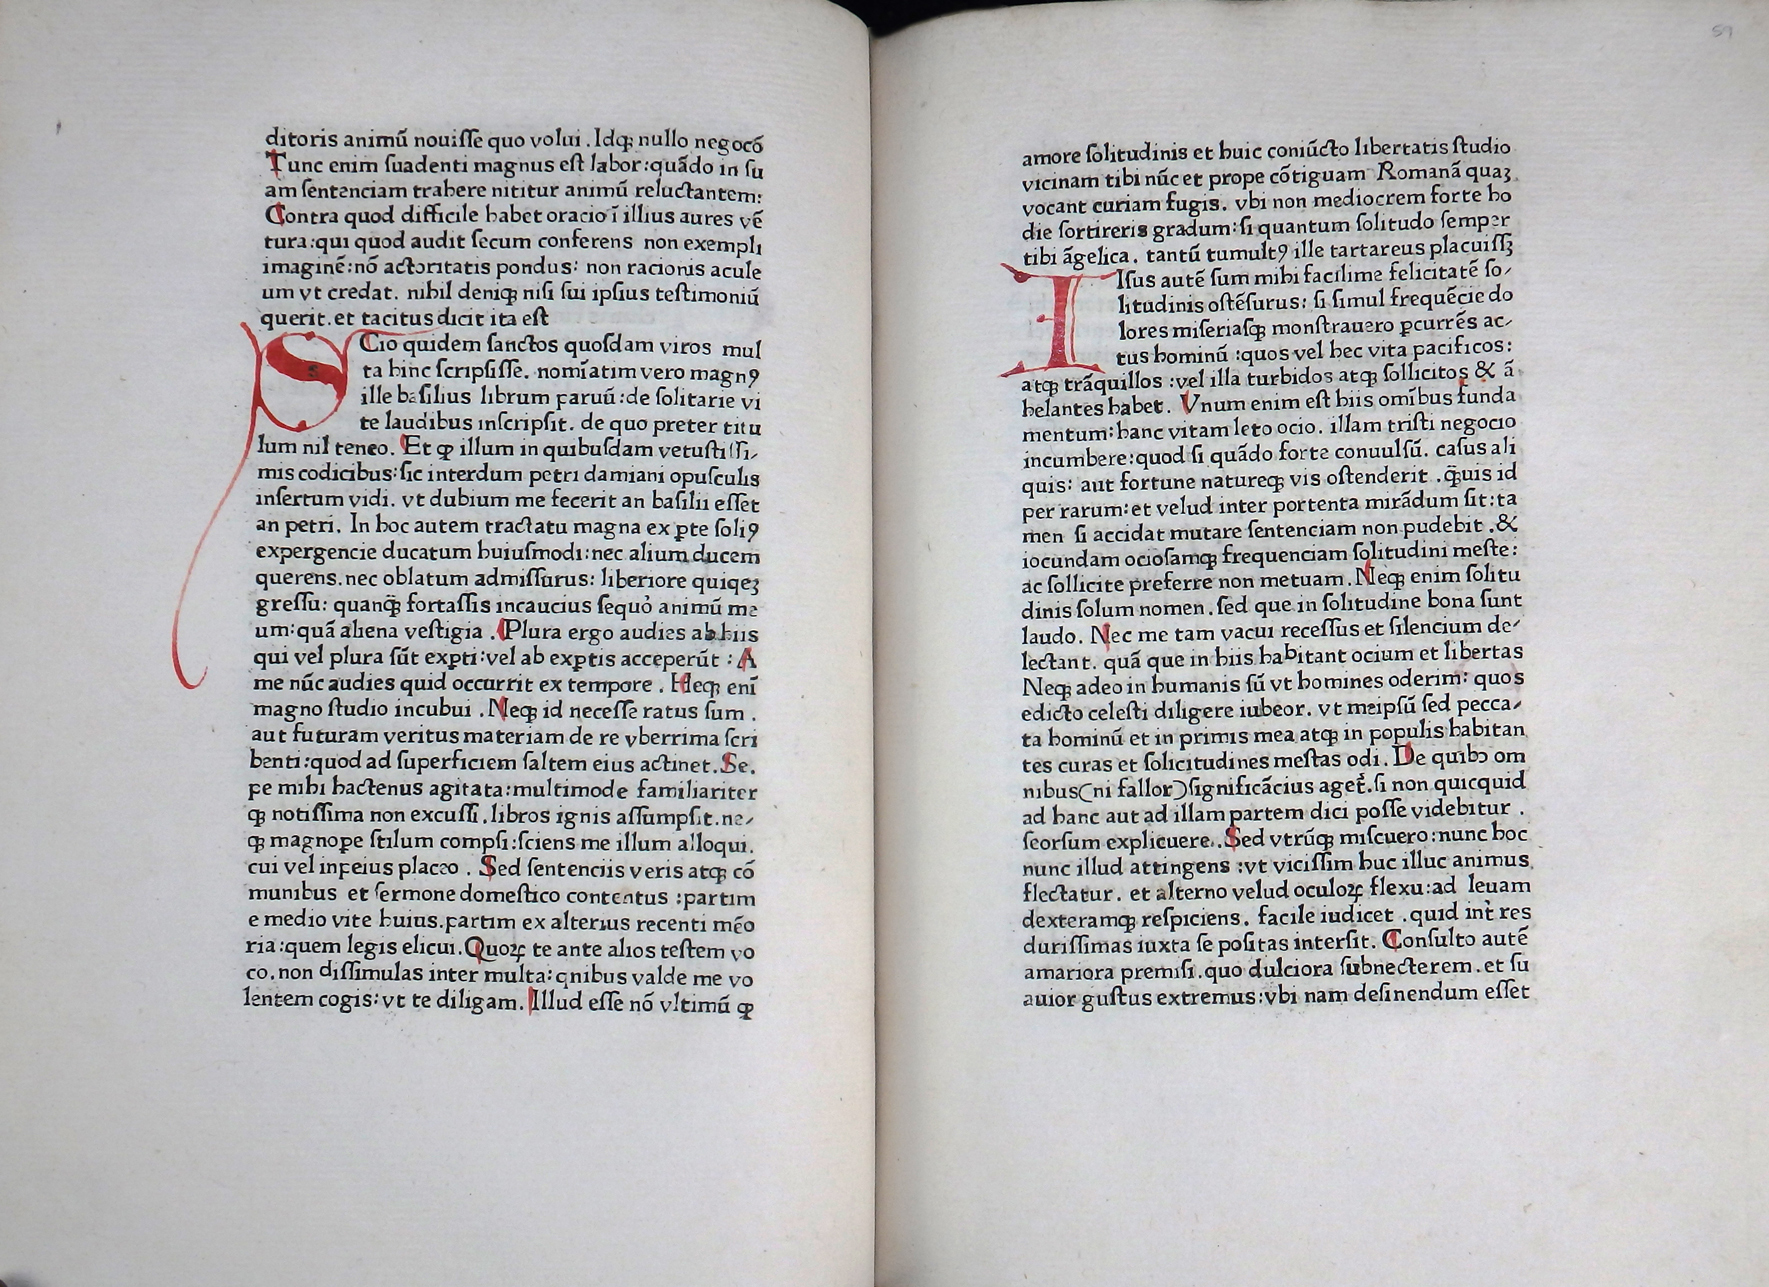 ditoris animū nouiſſe quo volui . Idqꝫ nullo negocō
Tunc enim ſuadenti magnus eſt labor:quādo in ſu
am ſentenciam trahere nititur animū reluctantem:
Contra quod difficile habet oracio ī illius aures vē
tura:qui quod audit ſecum conferens non exempli
imaginē:nō actoritatis pondus: non racionis acule
um vt credat. nihil deniqꝫ niſi ſui ipſius teſtimoniū
querit.et tacitus dicit ita eſt
SCio quidem ſanctos quoſdam viros mul
ta hinc ſcripſiſſe. nomīatim vero magnꝰ
ille baſilius librum paruū:de ſolitarie vi
te laudibus inſcripſit. de quo preter titu
lum nil teneo. Et ꝙ illum in quibuſdam vetuſtiſſi-
mis codicibus:ſic interdum petri damiani opuſculis
inſertum vidi. vt dubium me fecerit an baſilii eſſet
an petri. In hoc autem tractatu magna ex ꝑte ſoliꝰ
expergencie ducatum huiuſmodi:nec alium ducem
querens.nec oblatum admiſſurus: liberiore quiqeꝫ
greſſu: quanꝗ̄ fortaſſis incaucius ſequoꝛ animū me
um:quā aliena veſtigia . Plura ergo audies ab hiis
qui vel plura ſūt exꝑti:vel ab exꝑtis acceperūt : A
me nūc audies quid occurrit ex tempore . Neqꝫ enī
magno ſtudio incubui . Neqꝫ id neceſſe ratus ſum .
aut futuram veritus materiam de re vberrima ſcri
benti:quod ad ſuperficiem ſaltem eius actinet. Se.
pe mihi hactenus agitata:multimode familiariter
qꝫ notiſſima non excuſſi . libros ignis aſſumpſit.ne-
qꝫ magnope ſtilum compſi:ſciens me illum alloqui.
cui vel inpeius placeo . Sed ſentenciis veris atqꝫ cō
munibus et ſermone domeſtico contentus :partim
e medio vite huius.partim ex alterius recenti mēo
ria:quem legis elicui. Quoꝝ te ante alios teſtem vo
co.non diſſimulas inter multa:qnibus valde me vo
lentem cogis:vt te diligam. Illud eſſe nō vltimū ꝙ
59
amore ſolitudinis et huic coniūcto libertatis ſtudio
vicinam tibi nūc et prope cōtiguam Romanā quaꝫ
vocant curiam fugis. vbi non mediocrem forte ho
die ſortireris gradum:ſi quantum ſolitudo ſemper
tibi āgelica. tantū tumultꝰ ille tartareus placuiſſꝫ
IIſus autē ſum mihi facilime felicitatē ſo-
litudinis oſtēſurus: ſi ſimul frequēcie do
lores miſeriaſqꝫ monſtrauero ꝑcurrēs ac-
tus hominū :quos vel hec vita pacificos:
atqꝫ trāquillos :vel illa turbidos atqꝫ ſollicitos & ā
helantes habet. Vnum enim eſt hiis omībus funda
mentum:hanc vitam leto ocio. illam triſti negocio
incumbere:quod ſi quādo forte conuulſū. caſus ali
quis: aut fortune natureqꝫ vis oſtenderit . ꝗ̄quis id
per rarum:et velud inter portenta mirādum ſit:ta
men ſi accidat mutare ſentenciam non pudebit .&
iocundam ocioſamqꝫ frequenciam ſolitudini meſte:
ac ſollicite preferre non metuam. Neqꝫ enim ſolitu
dinis ſolum nomen . ſed que in ſolitudine bona ſunt
laudo. Nec me tam vacui receſſus et ſilencium de-
lectant. quā que in hiis habitant ocium et libertas
Neqꝫ adeo in humanis ſū vt homines oderim: quos
edicto celeſti diligere iubeor. vt meipſū ſed pecca-
ta hominū et in primis mea atqꝫ in populis habitan
tes curas et ſolicitudines meſtas odi. De quibꝰ om
nibus(ni fallor)ſignificācius aget̛.ſi non quicquid
ad hanc aut ad illam partem dici poſſe videbitur .
ſeorſum explicuere.. Sed vtrūqꝫ miſcuero:nunc hoc
nunc illud attingens :vt viciſſim huc illuc animus
flectatur. et alterno velud oculoꝝ flexu:ad leuam
dexteramqꝫ reſpiciens. facile iudicet .quid int̛ res
duriſſimas iuxta ſe poſitas interſit. Conſulto autē
amariora premiſi.quo dulciora ſubnecterem.et ſu
auior guſtus extremus:vbi nam deſinendum eſſet